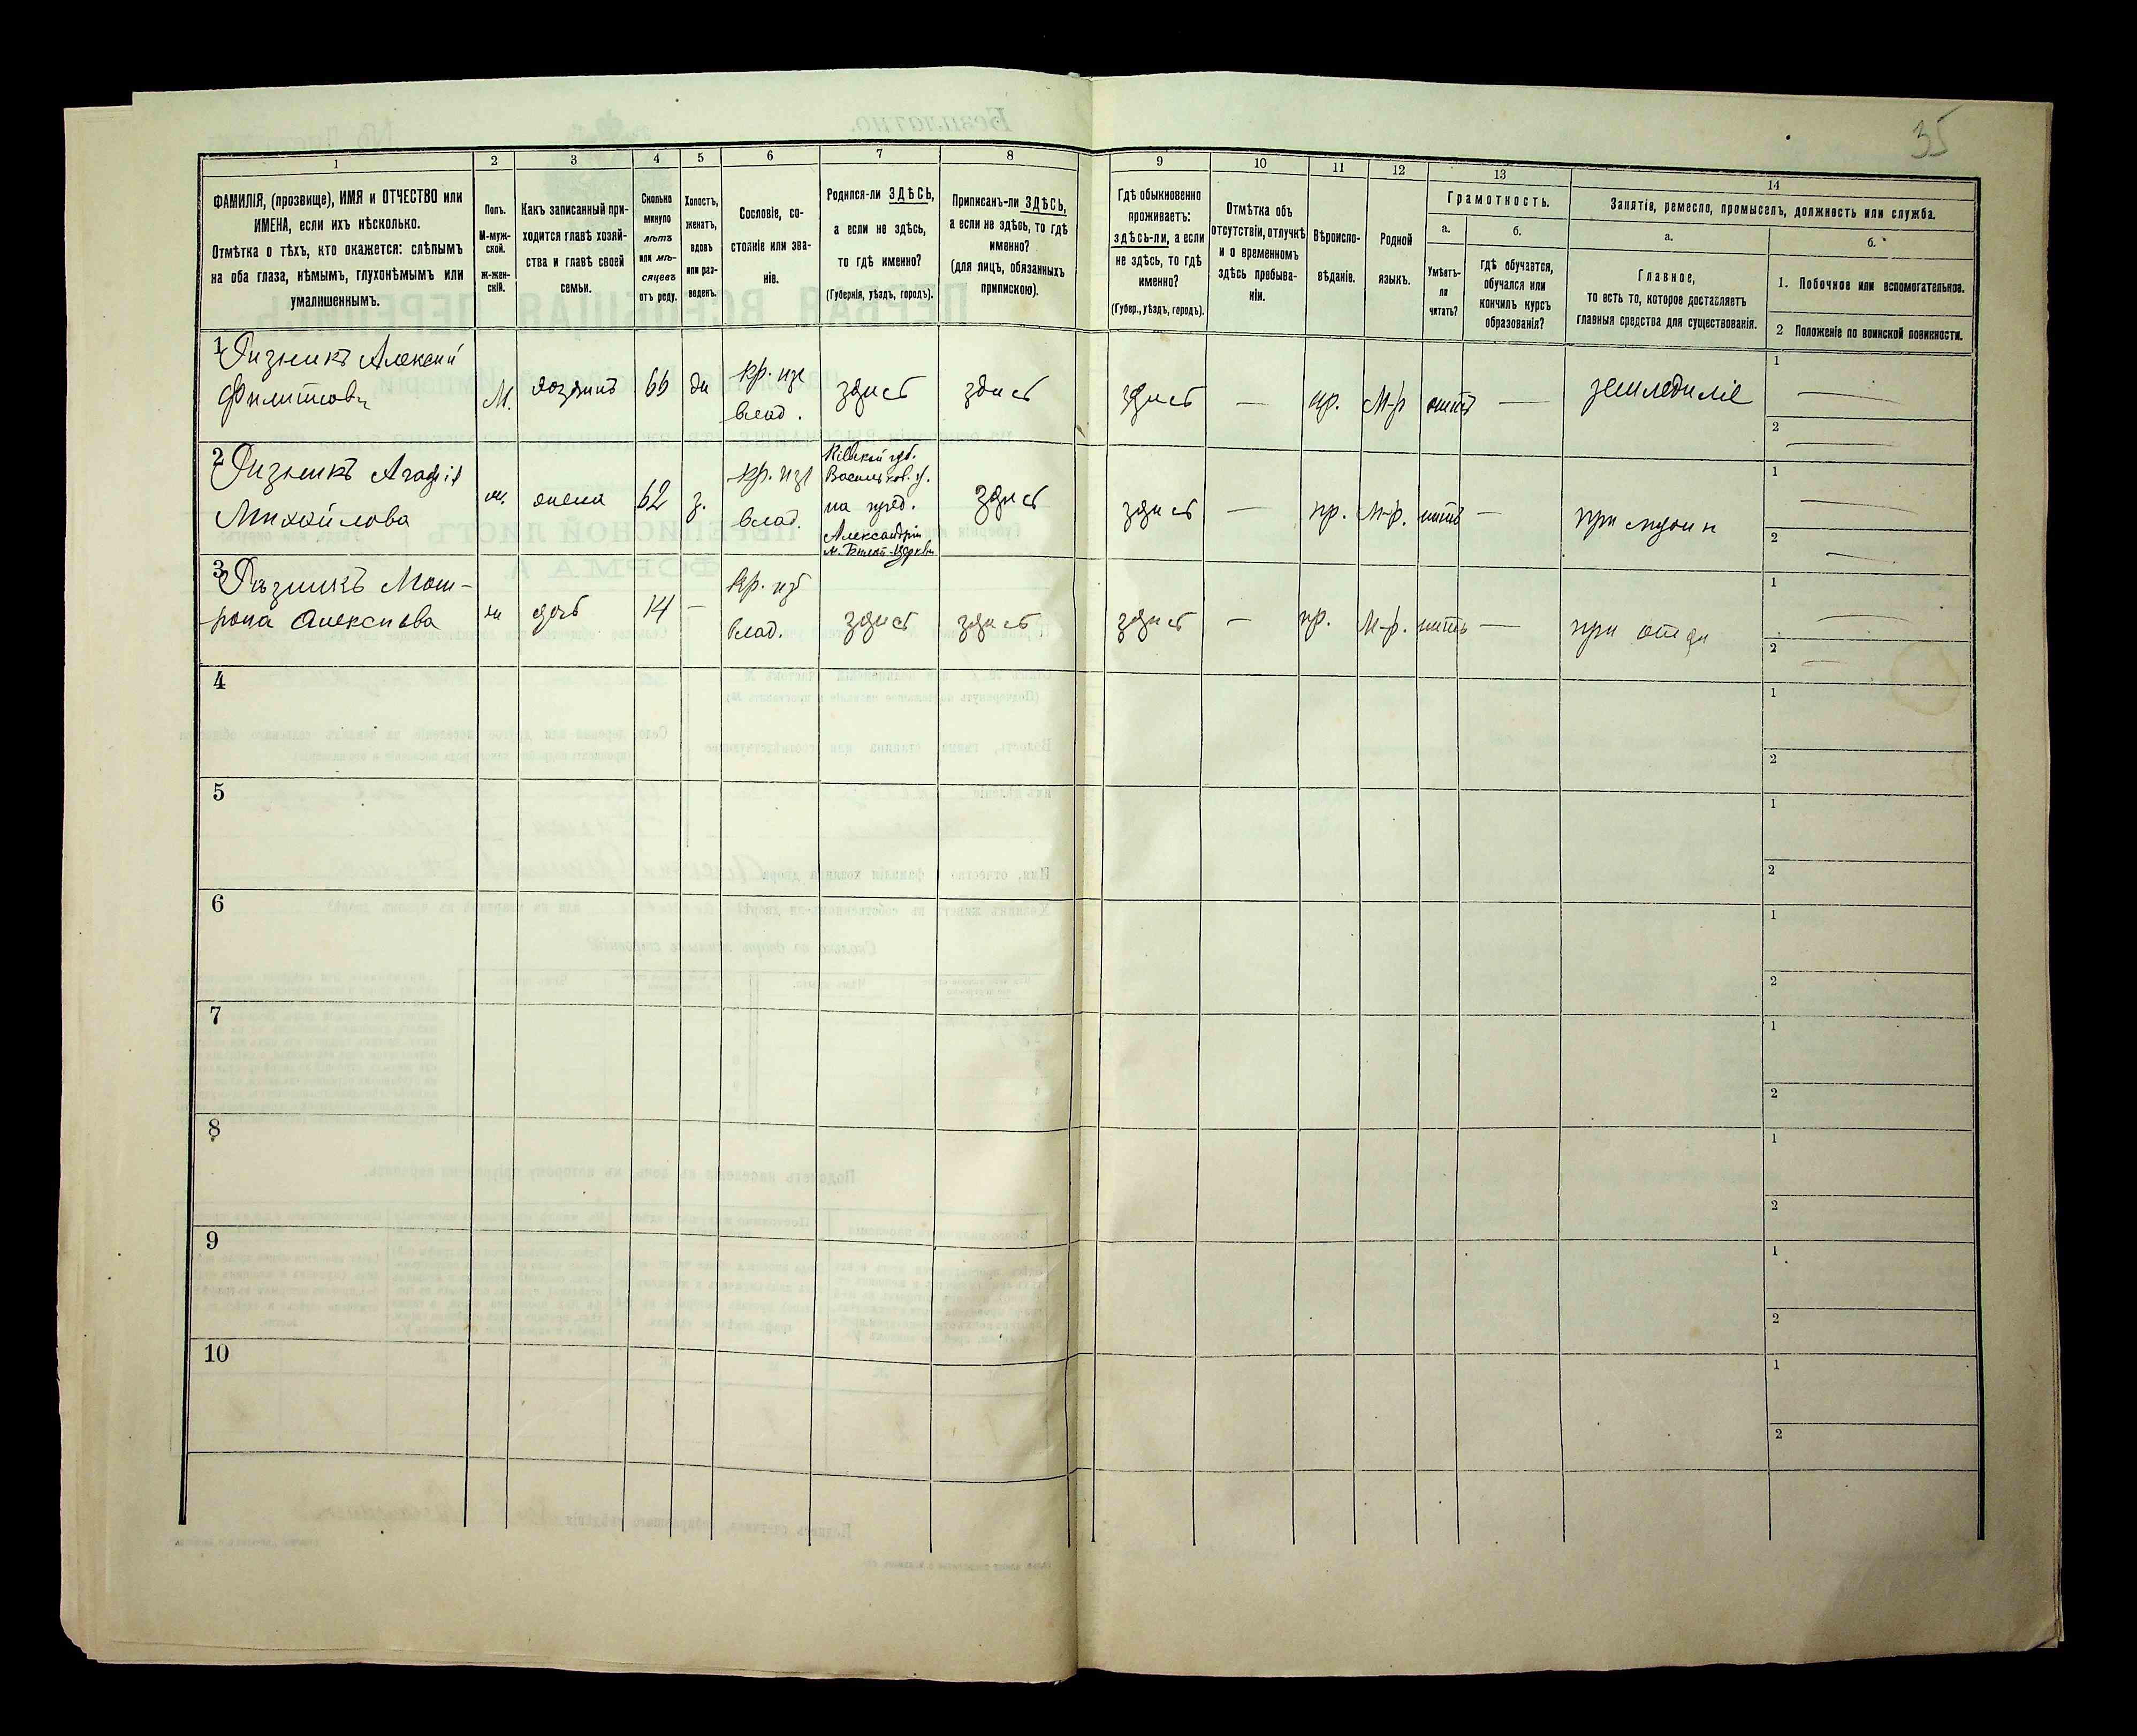 35
1
2
3
4
5
6
7
8
9
10
11
12
13
14
ФАМИЛІЯ, (прозвище), ИМЯ и ОТЧЕСТВО или
ИМЕНА, если ихъ нѣсколько.
Отмѣтка о тѣхъ, кто окажется: слѣпымъ
на оба глаза, нѣмымъ, глухонѣмымъ или
умалишеннымъ.
Полъ.
М-муж-
ской.
ж-жен-
скій.
Какъ записанный при-
ходится главѣ хозяй-
ства и главѣ своей
семьи.
Сколько
минуло
лѣтъ
или мѣ-
сяцевъ
отъ роду.
Холостъ,
женатъ,
вдовъ
или раз-
веденъ.
Сословіе, со-
стояніе или зва-
ніе.
Родился-ли ЗДѢСЬ,
а если не здѣсь,
то гдѣ именно?
(Губернія, уѣздъ, городъ).
Приписанъ-ли ЗДѢСЬ,
а если не здѣсь, то гдѣ
именно?
(для лицъ, обязанныхъ
припискою).
Гдѣ обыкновенно
проживаетъ:
здѣсь-ли, а если
не здѣсь, то гдѣ
именно?
(Губер., уѣздъ, городъ).
Отмѣтка объ
отсутствіи, отлучкѣ
и о временномъ
здѣсь пребыва-
ніи.
Вѣроиспо-
вѣданіе.
Родной
языкъ.
Грамотность.
а.
Умѣетъ-
ли
читать?
б.
гдѣ обучается,
обучался или
кончилъ курсъ
образованія?
Занятія, ремесло, промыселъ, должность или служба.
а.
Главное,
то есть то, которое доставляетъ
главныя средства для существованія.
б.
1. Побочное или вспомогательное.
2 Положеніе по воинской повинности.
1
Ризникъ Алексий
Филиповъ
М.
хозяинъ
66
кр. изъ
влад.
здись
здись
здись
—
пр.
М-р
нить
—
земледиліе
1 —
2 —
2
Ризникъ Агафія
Михайлова
жена
62
з.
кр. изъ
влад.
Кіевской губ.
Васильков. у.
на пред.
Александрія
м. Билой-Церкви
здись
здись
—
пр.
М-р.
нить
—
при мужи
1 —
2 —
3
Ризникъ Мот-
рона Алексиева
дочь
14
—
кр. изъ
влад.
здись
здись
здись
—
пр.
М-р.
нить
—
при отци
1 —
2 —
4
1
2
5
1
2
6
1
2
7
1
2
8
1
2
9
1
2
10
1
2